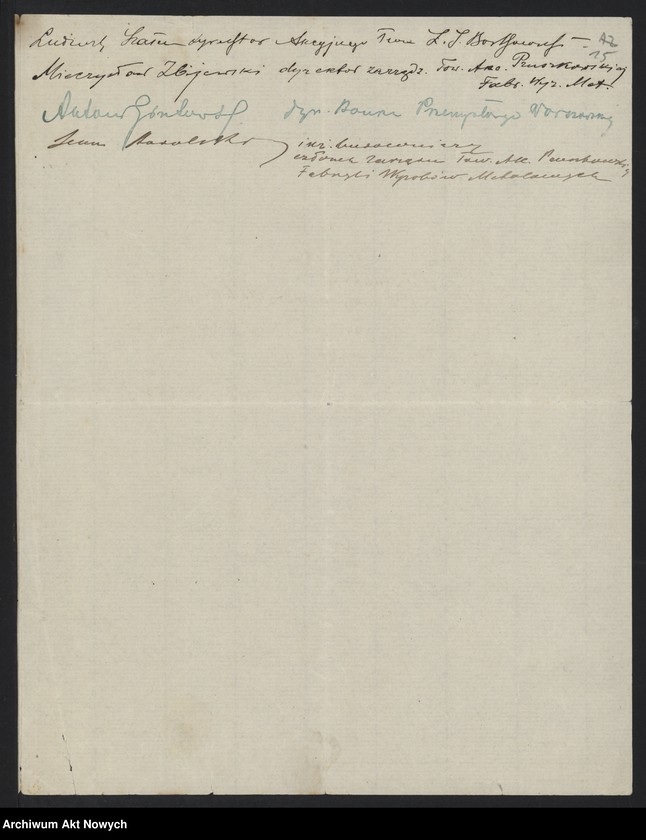 Ludwik dyrektor Akcyjnego Tow. L. J. Borkowski –
42
15
Mieczysław Zbijewski dyrektor zarządz. Tow. Akc. Pruszkowskiej
Fabr. Wyr. Met.
Antoni dyr. Banku Przemysłowego Warszawsk
Jan inż.
członek zarządu Tow. Akc. Pruszkowskiej
Fabryki Wyrobów Metalowych
Archiwum Akt Nowych